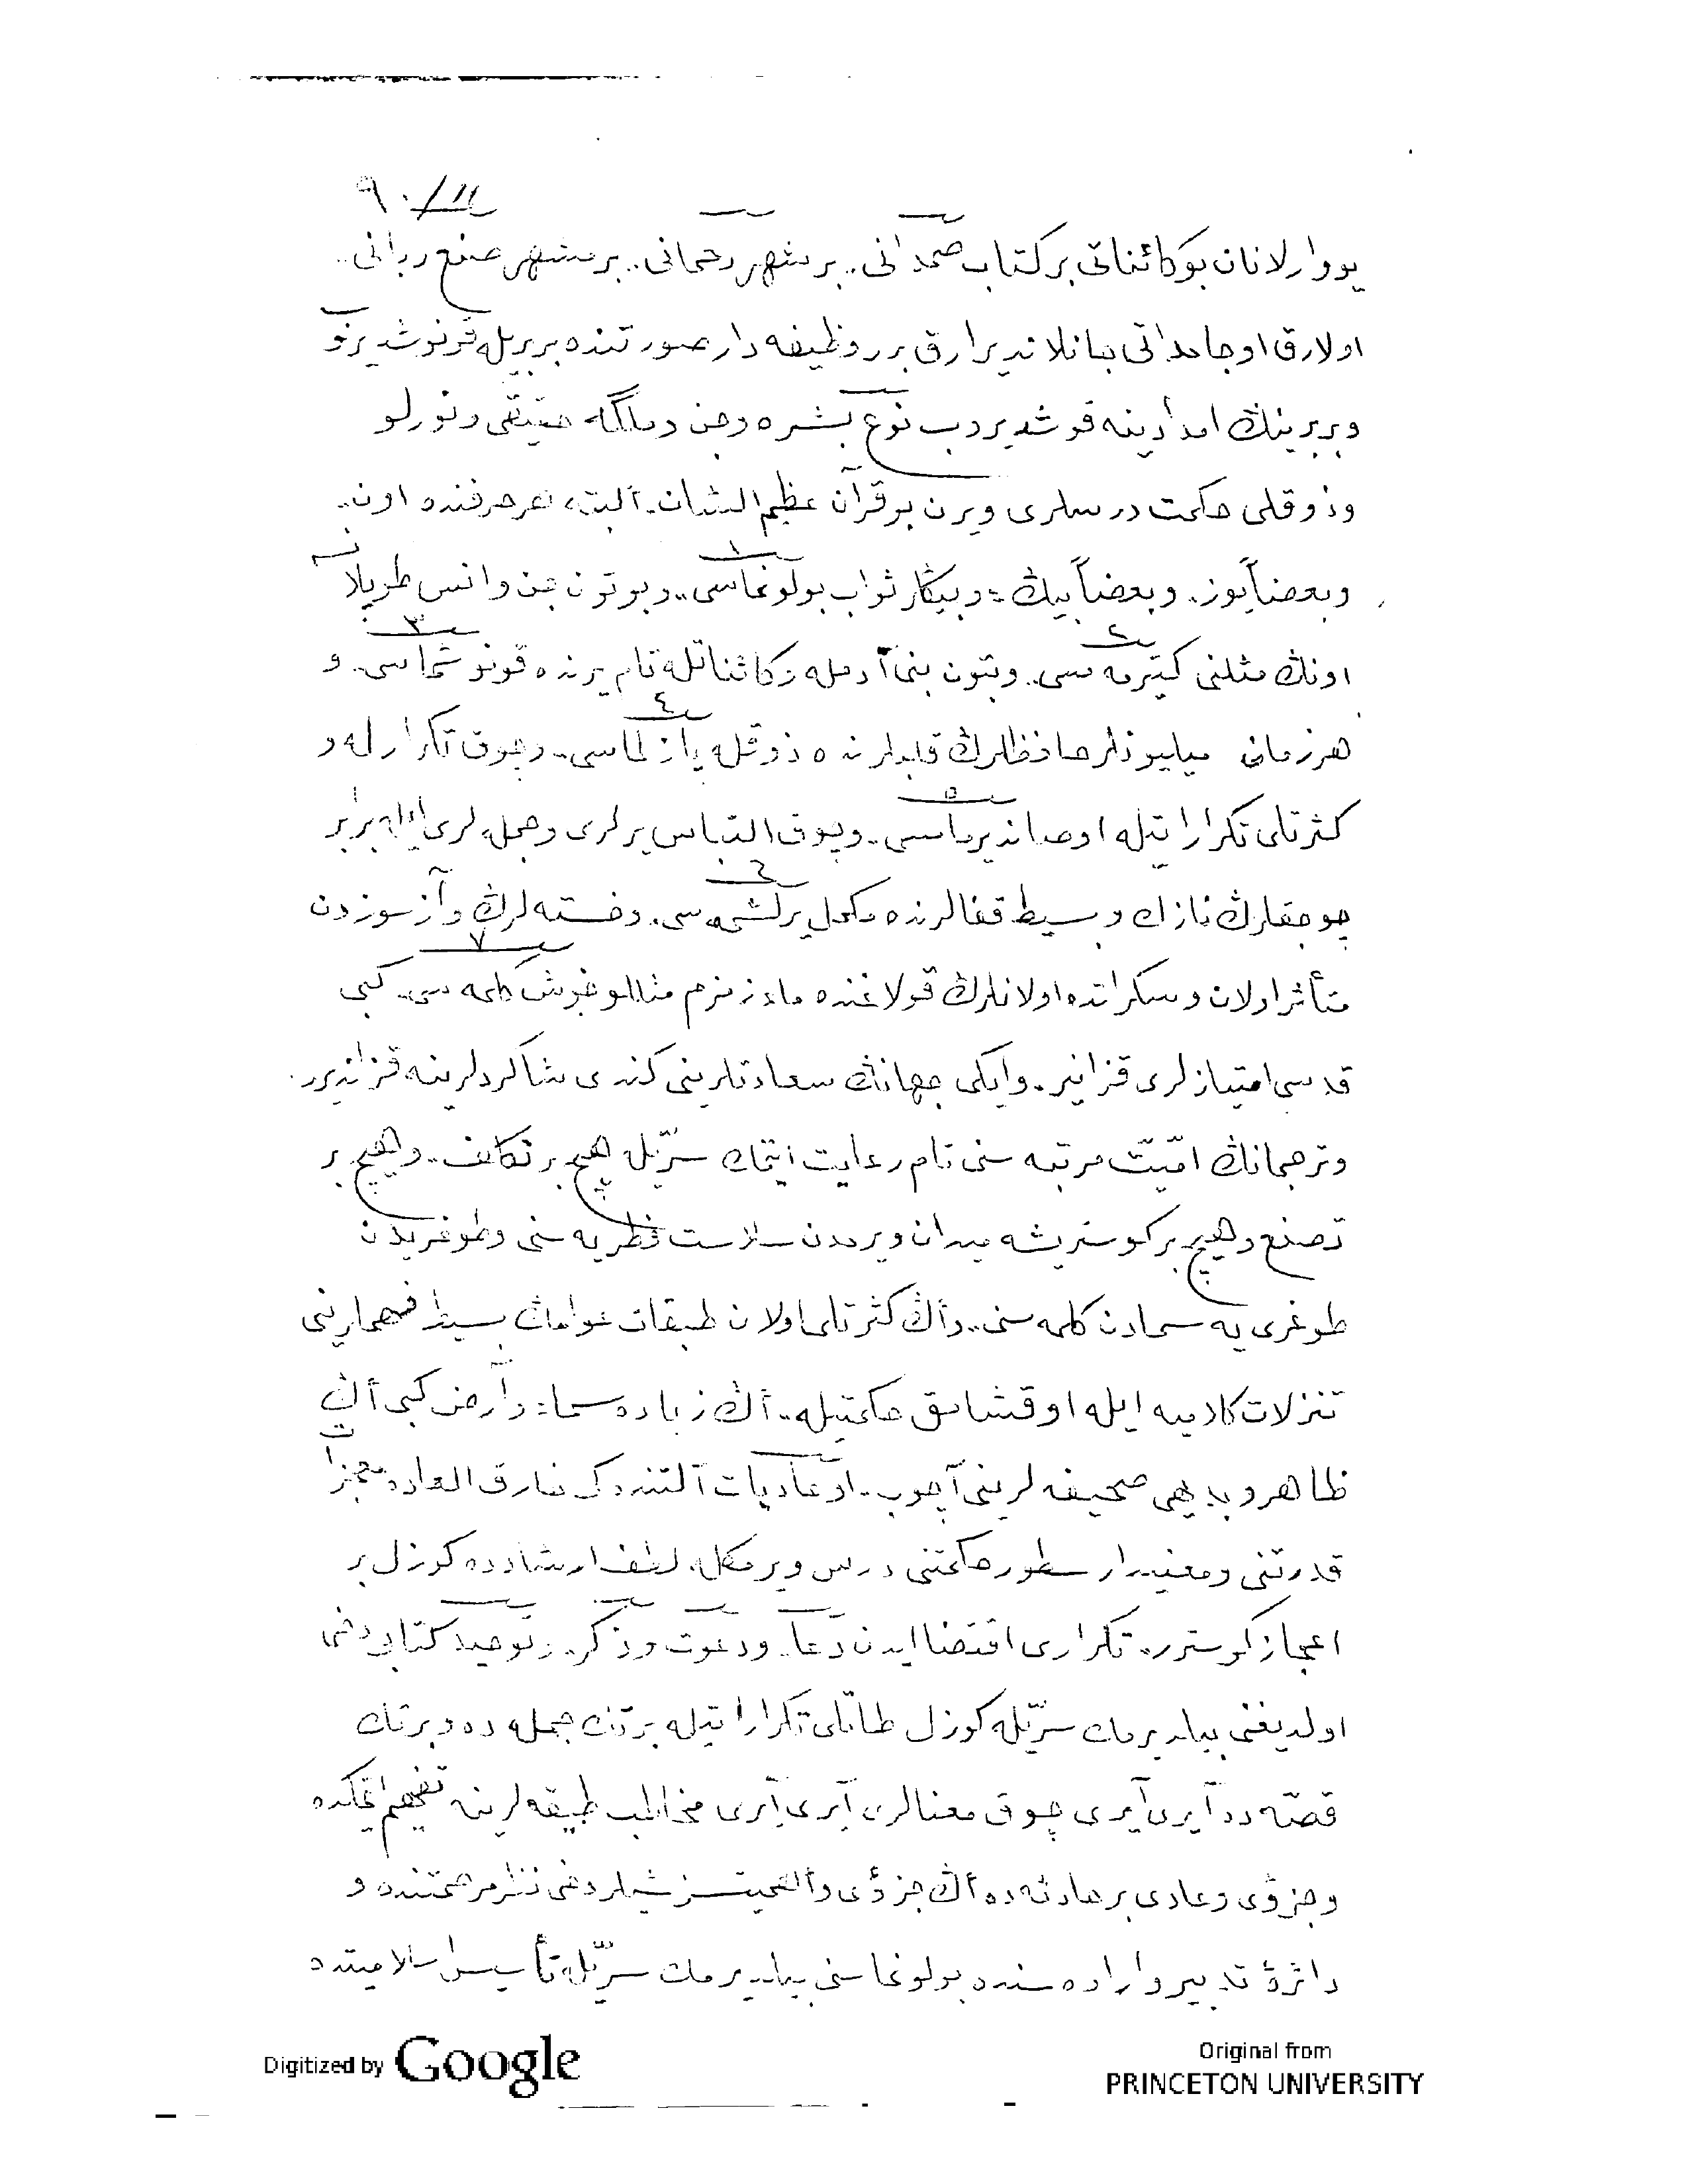 ٩٠/١١
يووارلانان بو كائناتى بر كتاب صمدانى.. بر شهر رحمانى.. بر مشهر صنع ربانى..
اولارق او جامداتى جانلانديرارق برر وظيفه دار صورتنده بربريله قونوشديروب
وبربرينڭ امدادينه قوشديروب نوع بشره وجن وملكه حقيقى ونورلو
وذوقلى حكمت درسلرى ويرن بو قرآن عظيم الشان. ألبته هر حرفنده اون.
وبعضاً يوز. وبعضاً بيڭ. وبيڭلر ثواب بولونماسى.. وبوتون جن وانس طوپلانسه
اونڭ مثلنى كتيرمه مسى. وبتون بنى آدمله وكائناتله تام يرنده قونوشماسى. و
هر زمان ميليونلر حافظلرڭ قلبلرنده ذوقله يازلماسى. وچوق تكرارله و
كثرتلى تكراراتيله اوصانديرماسى. وچوق التباس يرلرى وجمله لرى ايله برابر
چوجقلرڭ نازك وبسيط قفالرنده مكمل يرلشمه سى. وخسته لرڭ وآز سوزدن
متأثر اولان وسكراتده اولانلرڭ قولاغنده ماء زمزم مثللو خوش كلمه سى. كبى
قدسى امتيازلرى قزانير. وايكى جهانڭ سعادتلرينى كندى شاكردلرينه قزانديرر.
وترجمانڭ امّيّت مرتبه سنى تام رعايت ايتمك سرّيله هيچ بر تكلف. وهيچ بر
تصنع وهيچ بر كوستريشه ميدان ويرمدن سلاست فطريه سنى وطوغريدن
طوغرى يه سمادن كلمه سنى.. وأڭ كثرتلى اولان طبقات عوامڭ بسيط فهملرينى
تنزلات كلاميه ايله اوقشامق حكمتيله.. أڭ زياده سماء وأرض كبى أڭ
ظاهر وبديهى صحيفه لرينى آچوب.. او عاديات آلتنده كى خارق العاده معجزات
قدرتنى ومعنيدار سطور حكمتنى درس ويرمكله. لطف ارشادده كوزل بر
اعجاز كوسترر. تكرارى اقتضا ايدن دعا. ودعوت وذكر. وتوحيد كتابى دخى
اولديغنى بيلديرمك سرّيله كوزل طاتلى تكراراتيله برتك جمله ده وبرتك
قصّه ده آيرى آيرى چوق معنالرى آيرى آيرى مخاطب طبقه لرينه تفهيم ايتمكده
وجزؤى وعادى بر حادثه ده أڭ جزؤى وأهميتسز شيلر دخى نظر مرحمتنده و
دائرۀ تدبير واراده سنده بولونماسنى بيلديرمك سرّيله تأسيس اسلاميتده
Digitized by Google
Original from
PRINCETON UNIVERSITY